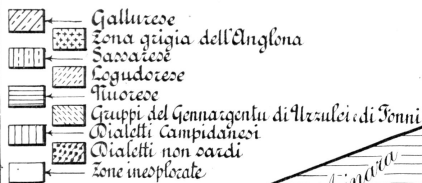 Gallurese
Zona grigia dell'Anglona
Sassarese
Logudorese
Nuorese
Gruppi del Gennargentu di Urzulei e di Fonni
Dialetti Campidanesi
Dialetti non sardi
Zone inesplorate